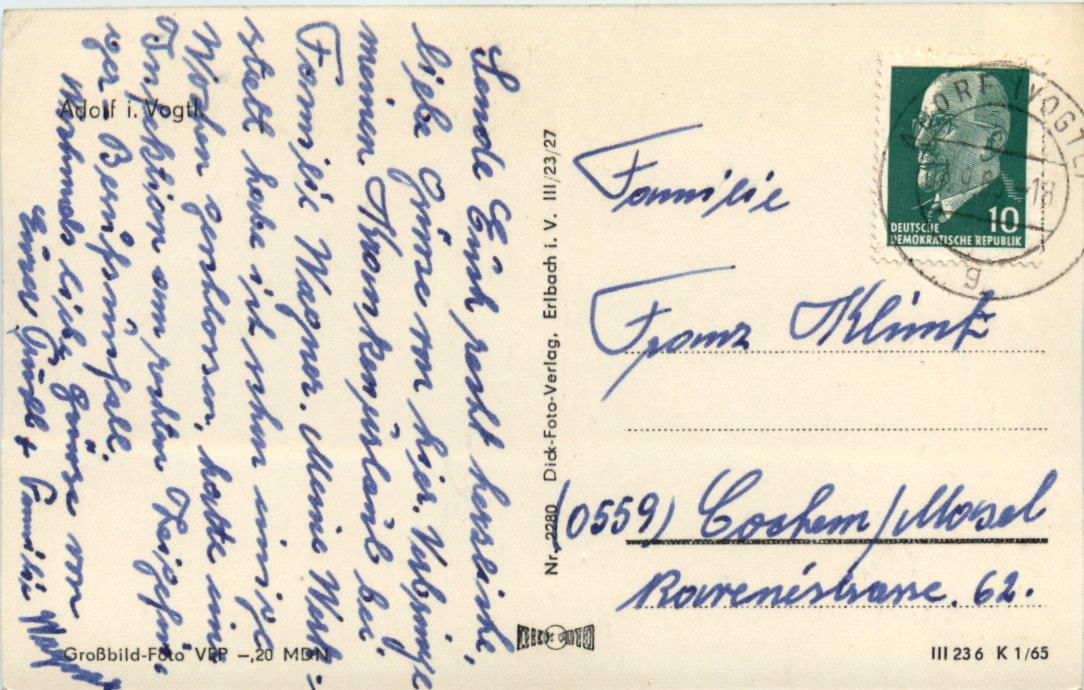 Adorf i. Vogtl.
Sende Euch recht herzliche,
liebe Grüße von hier. Verbringe
meinen Krankenurlaub bei
Familie Wagner. Meine Werk-
statt habe ich schon einige
Wochen geschlossen, hatte eine
Infektion am rechten Zeigefin-
ger. Berufsunfall.
Nochmals liebe Grüße von
Eurer & Familie Wagner
Großbild-Foto VEP -,20 MDN
Nr. 2280 Dick-Foto-Verlag, Erlbach i. V. III/23/27
ADORF (VOGTL)
18
g
10
DEUTSCHE
DEMOKRATISCHE REPUBLIK
Familie
Franz Klintz
(0559) Cochem/Mosel
Ravenéstrasse. 62.
III 23 6 K 1/65